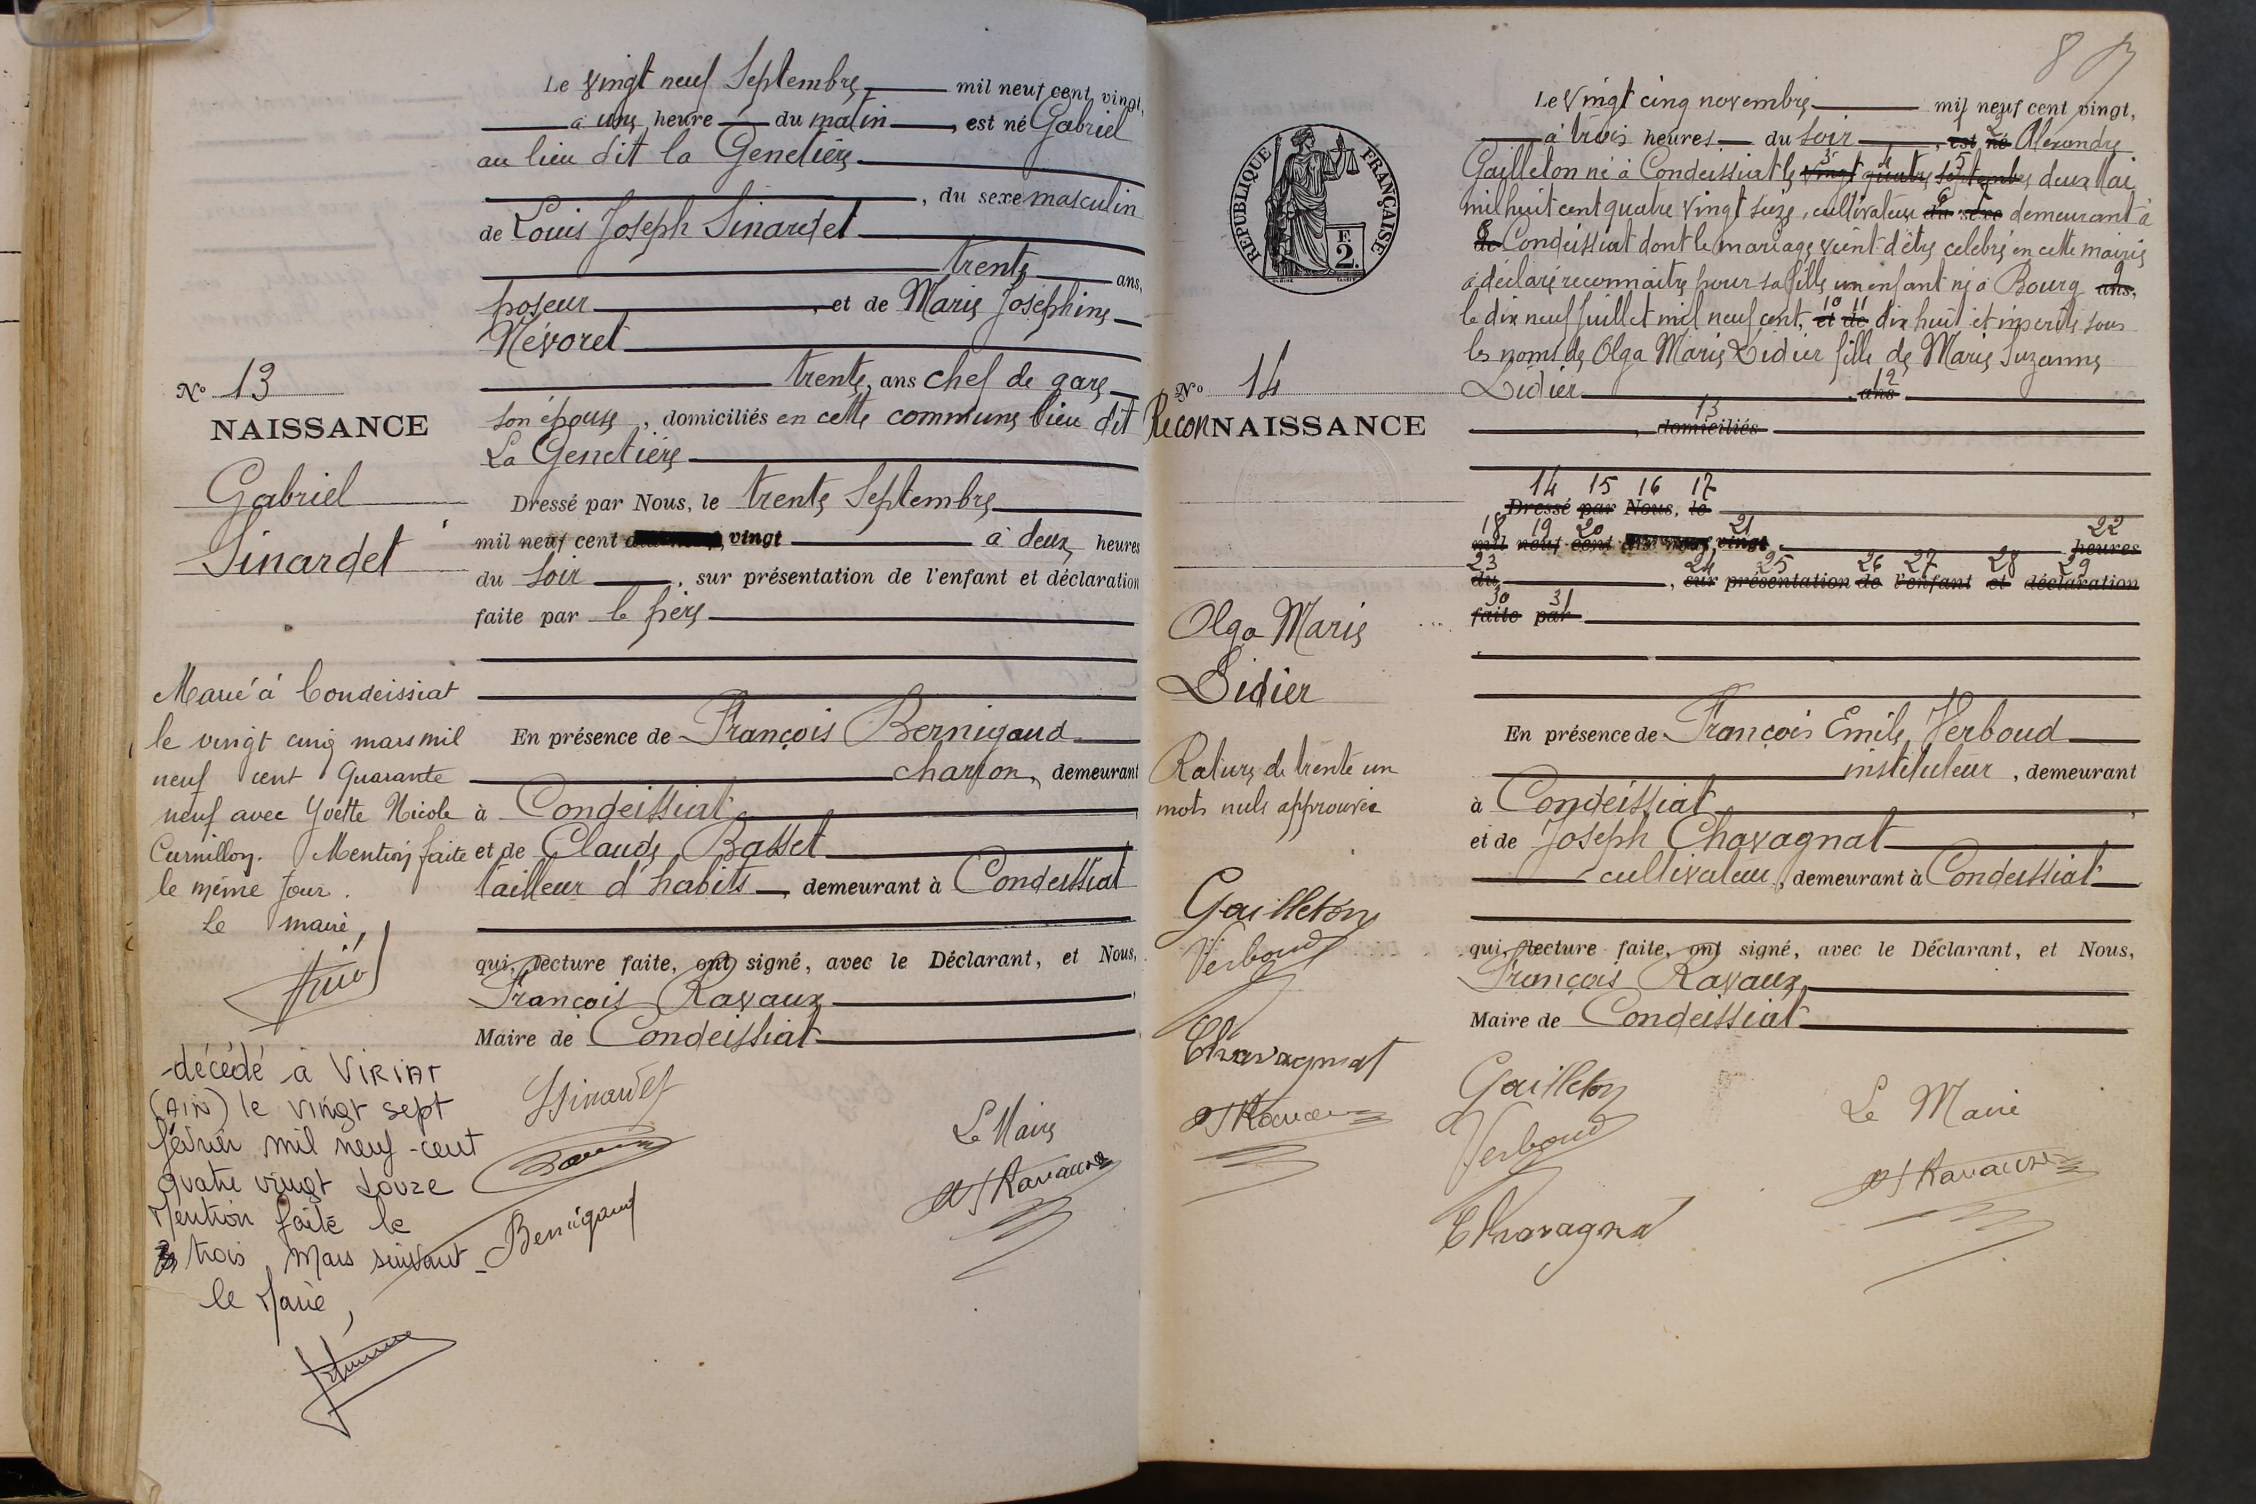 Le vingt neuf Septembre mil neuf cent vingt,
à une heure du matin, est né Gabriel
au lieu dit la Genetière
, du sexe masculin
de Louis Joseph Sinardet
trente ans,
poseur, et de Marie Joséphine
Névoret
trente, ans chef de gare
son épouse, domiciliés en cette commune lieu dit
La Genetière
Nº 13
NAISSANCE
Gabriel
Sinardet
Dressé par Nous, le trente Septembre
mil neuf cent vingt à deux heures
du soir, sur présentation de l'enfant et déclaration
faite par le père
En présence de François Bernigaud
charron, demeurant
à Condeissiat
et de Claude Basset
tailleur d'habits, demeurant à Condeissiat
qui, lecture faite, ont signé, avec le Déclarant, et Nous,
François Ravaux
Maire de Condeissiat
LSinardet
Bernigaud
Le Maire
Ravaux
Marié à Condeissiat
le vingt cinq mars mil
neuf cent Quarante
neuf avec Yvette Nicole
Curnillon. Mention faite
le même jour.
Le maire,
décédé à VIRIAT
(AIN) le vingt sept
février mil neuf-cent
quatre vingt douze
Mention faite le
trois Mars suivant
le Maire,
8
Le Vingt cinq novembre mil neuf cent vingt,
à trois heures du soir, est né Alexandre
Gailleton né à Condeissiat le vingt quatre septembre deux Mai
mil huit cent quatre vingt seize, cultivateur du sexe demeurant à
de Condeissiat dont le mariage vient d'être célébré en cette mairie
a déclaré reconnaître pour sa fille un enfant né à Bourg ans,
le dix neuf Juillet mil neuf cent, et de dix huit et inscrite sous
les noms de Olga Marie Didier fille de Marie Suzanne
Didier ans
, domiciliés
RÉPUBLIQUE FRANÇAISE
F.
2.
Nº 14
ReconNAISSANCE
Olga Marie
Didier
Rature de trente un
mots nuls approuvée
Gailleton
Verboud
Chavagnat
Ravaux
14 15 16 17
Dressé par Nous, le
18 19 20 21 22
mil neuf cent vingt heures
23 24 25 26 27 28 29
du, sur présentation de l'enfant et déclaration
30 31
faite par
En présence de François Emile Verboud
instituteur, demeurant
à Condeissiat
et de Joseph Chavagnat
cultivateur, demeurant à Condeissiat
qui, lecture faite, ont signé, avec le Déclarant, et Nous,
François Ravaux
Maire de Condeissiat
Gailleton
Verboud
Chavagnat
Le Maire
Ravaux